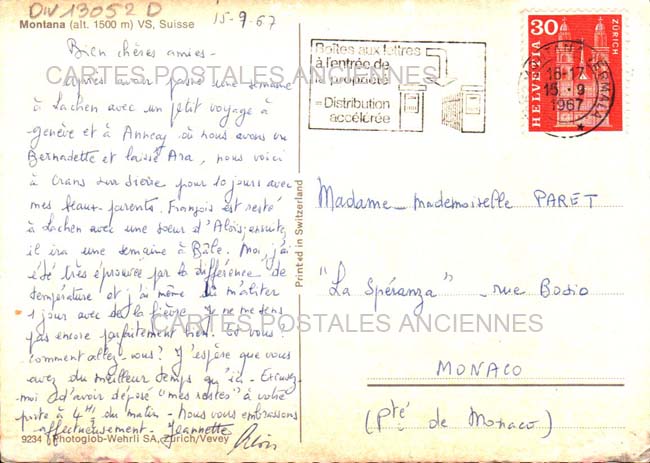 DIV 13052 D
Montana (alt. 1500 m) VS, Suisse
15-9-67
Bien chères amies -
Après avoir passé une semaine
à Lachen avec un petit voyage à
Genève et à Annecy où nous avons vu
Bernadette et laissé Ara, nous voici
à Crans sur Sierre pour 10 jours avec
mes beaux-parents. François est resté
à Lachen avec une soeur d'Alois, ensuite
il ira une semaine à Bâle. Moi, j'ai
été très éprouvée par la différence de
température et j'ai même dû m'aliter
1 jour avec de la fièvre. Je ne me sens
pas encore parfaitement bien. Et vous?
Comment allez-vous? J'espère que vous
avez du meilleur temps qu'ici - Excusez-
moi d'avoir déposé "mes restes" à votre
porte à 4 H du matin - Nous vous embrassons
affectueusement - Jeannette
Alois
9234 Photoglob-Wehrli SA, Zürich/Vevey
Printed in Switzerland
Boîtes aux lettres
à l'entrée de
la propriété
= Distribution
accélérée
16-17
15. 9
1967
30
HELVETIA
ZÜRICH
Madame - Mademoiselle PARET
"La Spéranza" - rue Bosio
MONACO
(Pté de Monaco)
CARTES POSTALES ANCIENNES
CARTES POSTALES ANCIENNES